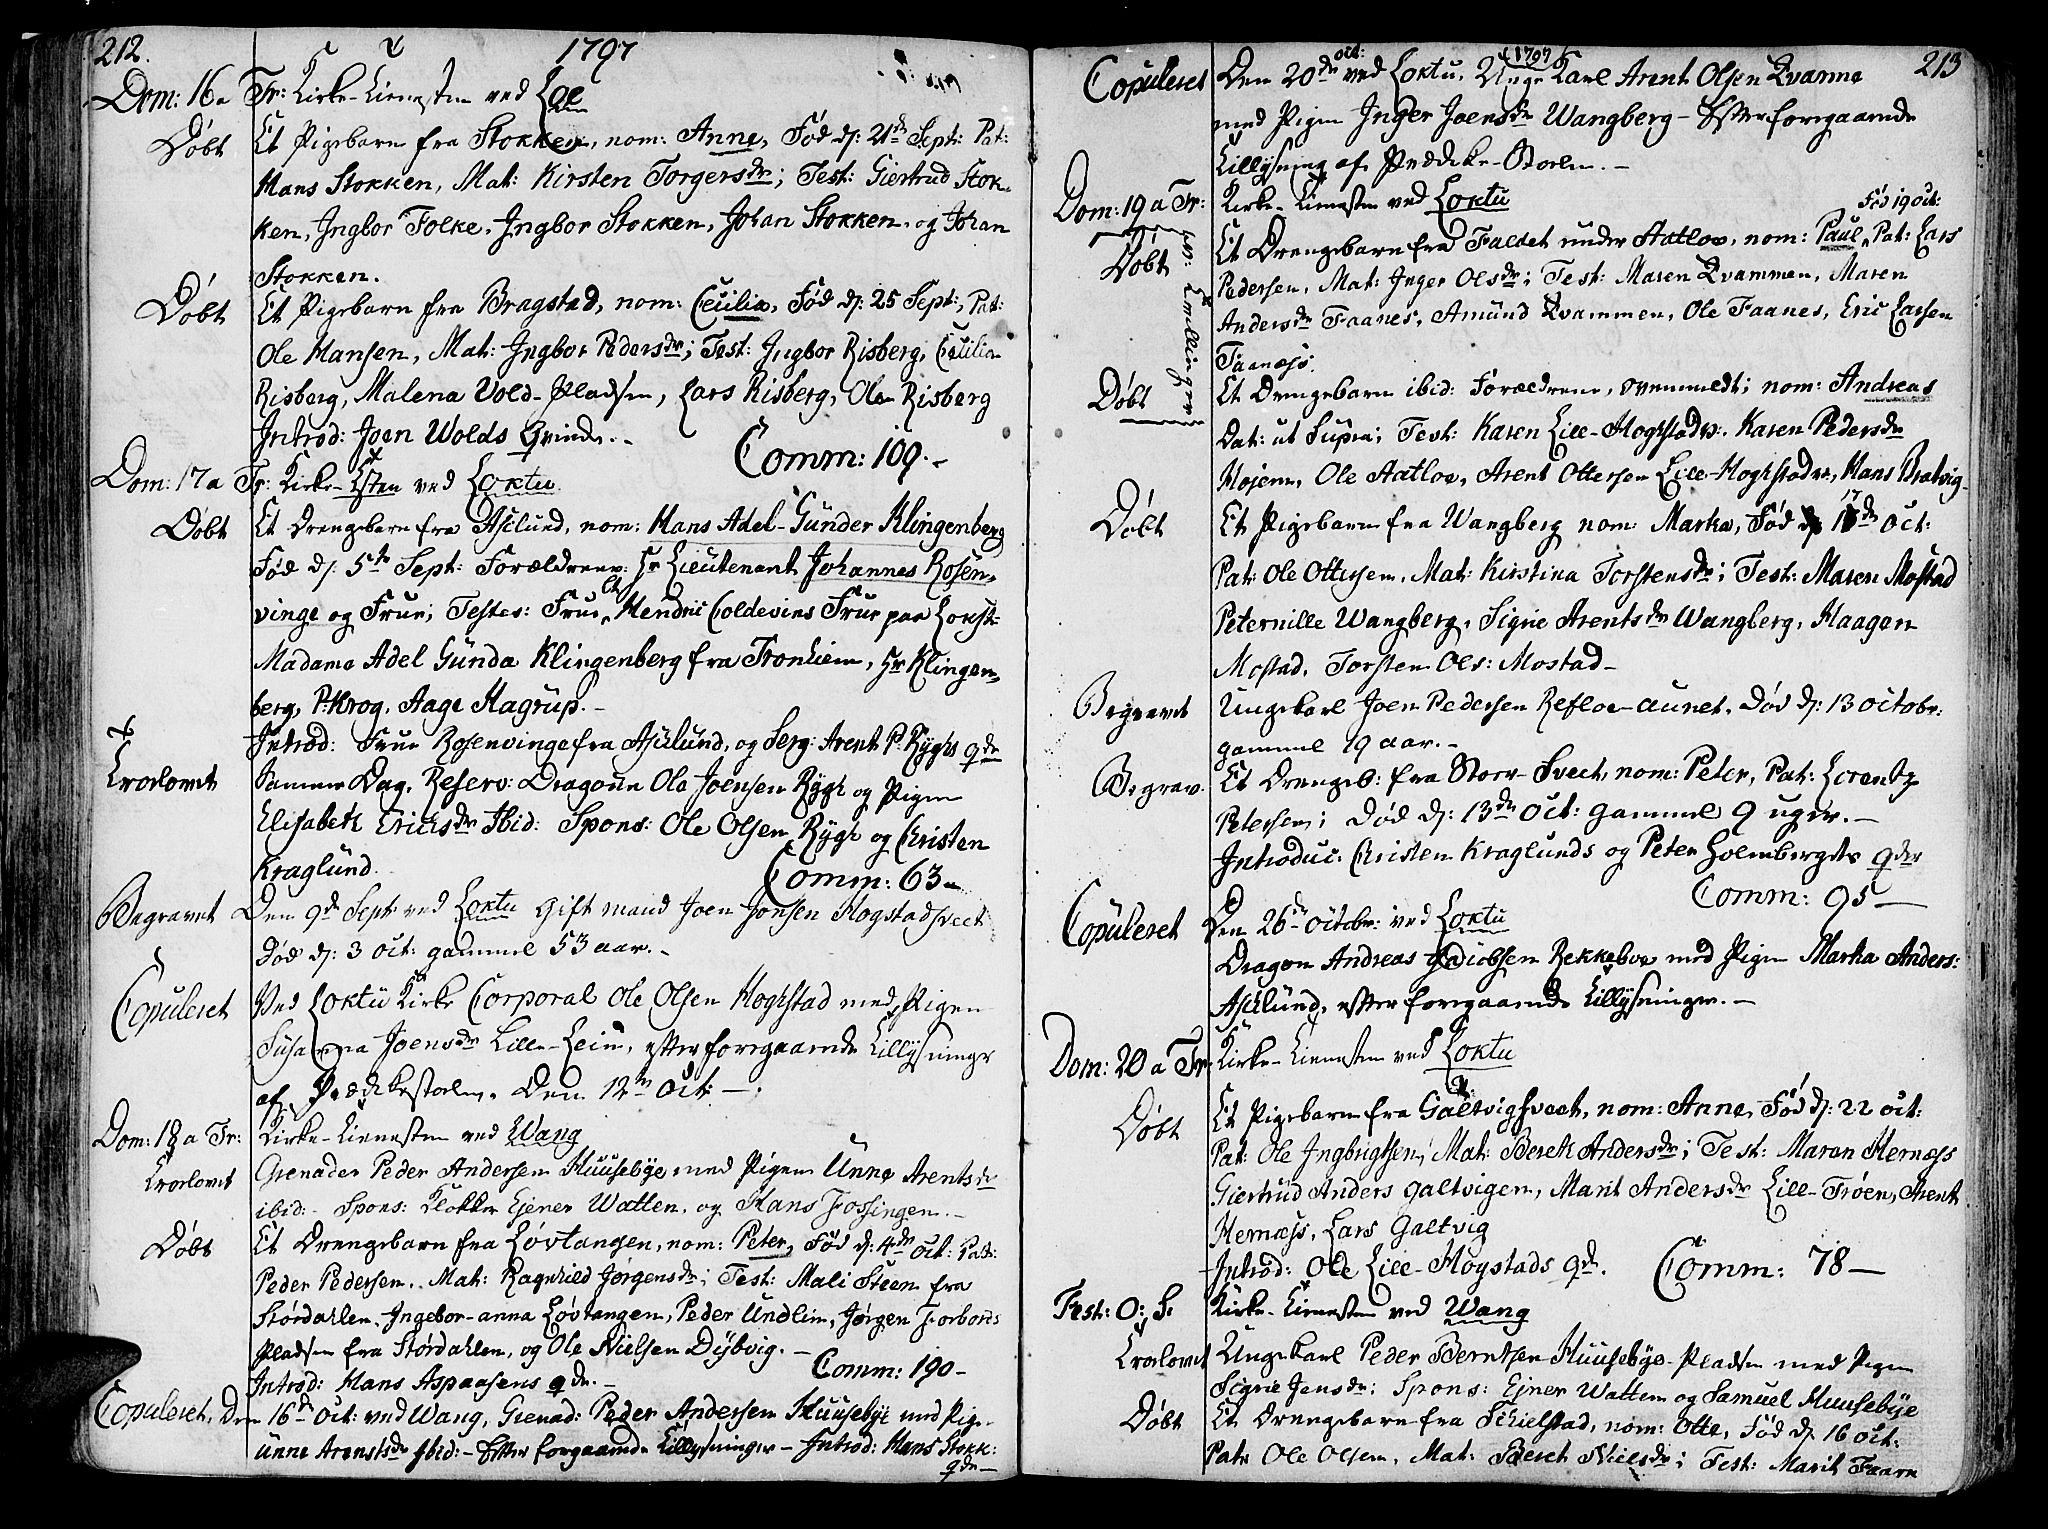 212. 1797
Dom: 16 a Tr: Kirke-Tienesten ved Ege
Døbt Et Pigebarn fra Stokken, nom: Anne, Fød d: 21de Sept: Pat:
Hans Stokken, Mat: Kirsten Torgersdr; Test: Giertrud Stok-
ken, Ingbor Folke, Ingbor Stokken, Johan Stokken, og Johan
Stokken.
Døbt Et Pigebarn fra Bragstad, nom: Cecilia, Fød d: 25 Sept:, Pat:
Ole Hansen, Mat: Ingbor Pedersdr; Test: Ingbor Risberg, Cecilia
Risberg, Malena Vold-Pladsen, Lars Risberg, Ole Risberg
Introd: Joen Wolds Qvinde. Comm: 109.-
Dom: 17 a Tr: Kirke- ved Loktu
Døbt Et Drengebarn fra Asclund, nom: Hans Adel-Gunder Klingenberg
Fød d: 5te Sept: Forældrene: Hr Lieutenant Johannes Rosen-
vinge og Frue; Testes: Frue, Hendric Coldevins Frue paa
Madame Adel Gunda Klingenberg fra Tronhiem, Hr Klingen-
berg, P: Krog, Aage Hagrup.-
Introd: Frue Rosenvinge fra Asclund, og Serg: Arent P: Ryghs qde
Troelovet Samme Dag, Reserv: Dragoun Ole Joensen Rygh og Pigen
Elisabeth Ericksdr Ibid: Spons: Ole Olsen Rygh og Christen
Kraglund. Comm: 63-
Begravet Den 9de Sept: ved Loktu Gift mand Joen Jonsen Hogstadsveet
Død d: 3 Oct: gammel 53 aar.-
Copuleret Ved Loktu Kirke Corporal Ole Olsen Hoghstad med Pigen
Susanna Joensdr Lille-Lein, efter foregaaende Tillysninger
af Prædikestolen. Den 12te Oct-.
Dom: 18 a Tr: Kirke-Tienesten ved Wang
Troelovet Grenader Peder Andersen Huusebye med Pigen Unne Arentsdr
ibid:- Spons: Klokker Ejner Watten, og Hans Fossingen.-
Døbt Et Drengebarn fra Løvtangen, nom: Peter, Fød d: 4de Oct: Pat:
Peder Pedersen. Mat: Ragnhild Jørgensdr; Test: Mali Steen fra
Størdahlen, Ingebor-anna Løvtangen, Peder Undlin, Jørgen Forbords
Pladsen fra Størdahlen, og Ole Nielsen Dybvig.-
Introd: Hans Aspaasens qde.- Comm: 190-
Copuleret, Den 16de Oct: ved Wang, Grenad: Peder Andersen Huusebye med Pige-
Unne Arentsdr Ibid:- Efter forgaaende Tillysninger- Introd: Hans Stokk:
qde-
1797 213
Copuleret Den 20de Oct: ved Loktu, Unge Karl Arent Olsen Qvamme
med Pigen Inger Joensdr Wangberg- Efter foregaaende
Tillysning af Prædike-Stolen.-
Dom: 19 a Tr: Kirke-Tienesten ved Loktu Fød 19 Oct:
Døbt Et Drengebarn fra Faldet under Aatloe, nom: Paul, Pat: Lars
Pedersen, Mat: Inger Olsdr; Test: Maren Qvammen, Maren
Andersdr Faanes, Amund Qvammen, Ole Faanes, Eric Larsen
Faaness.
Tvillinger
Døbt Et Drengebarn ibid: Forældrene, ovenmeldt; nom: Andreas
Dat: ut Supra; Test: Karen Lille-Hoghstad, Karen Pedersdr
Mojenn, Ole Aatloe, Arent Ottersen Lille-Hoghstad, Hans Bratvig
Døbt Et Pigebarn fra Wangberg nom: Marka, Fød d: 17de Oct:
Pat: Ole Ottersen, Mat: Kirstina Torstensdr; Test: Maren Mostad
Peternille Wangberg, Sigrie Arentsdr Wangberg, Haagen
Mostad, Torsten Ols: Mostad-
Begravet Ungekarl Joen Pedersen Refloe-aunet, Død d: 13 Octobr:
gammel 19 aar.-
Begrav. Et Drengeb: fra Stoer-Sveet, nom: Peter, Pat: Lorentz
Petersen; Død d: 13de Oct: gammel 9 uger.-
Introduc: Christen Kraglunds og Peter Holmbergets qder
Comm: 95-
Copuleret Den 26de Octobr: ved Loktu
Dragon Andreas Jacobsen Rekkeboe med Pigen Marka Anders:
Asclund, efter foregaaende Tillysninger.-
Dom: 20 a Tr: Kirke-Tienesten ved Loktu
Døbt Et Pigebarn fra Galtvigsveet, nom: Anne, Fød d: 22 Oct:
Pat: Ole Ingbrigtsen, Mat: Bereth Andersdr; Test: Maren Hernæss
Giertrud Anders Galtvigen, Marit Andersdr Lille-Trøen, Arent
Hernæss, Lars Galtvig
Introd: Ole Lille-Hogstads qde. Comm: 78-
Fest: O: S: Kirke-Tienesten ved Wang
Troelovet Ungekarl Peder Berntsen Huusebye-Pladsen med Pigen
Sigrie Jensdr; Spons: Ejner Watten og Samuel Huusebye
Døbt Et Drengebarn fra Schielstad, nom: Otte, Fød d: 16 Oct:
Pat: Ole Olsen, Mat: Beret Nielsdr; Test: Marit Faarn